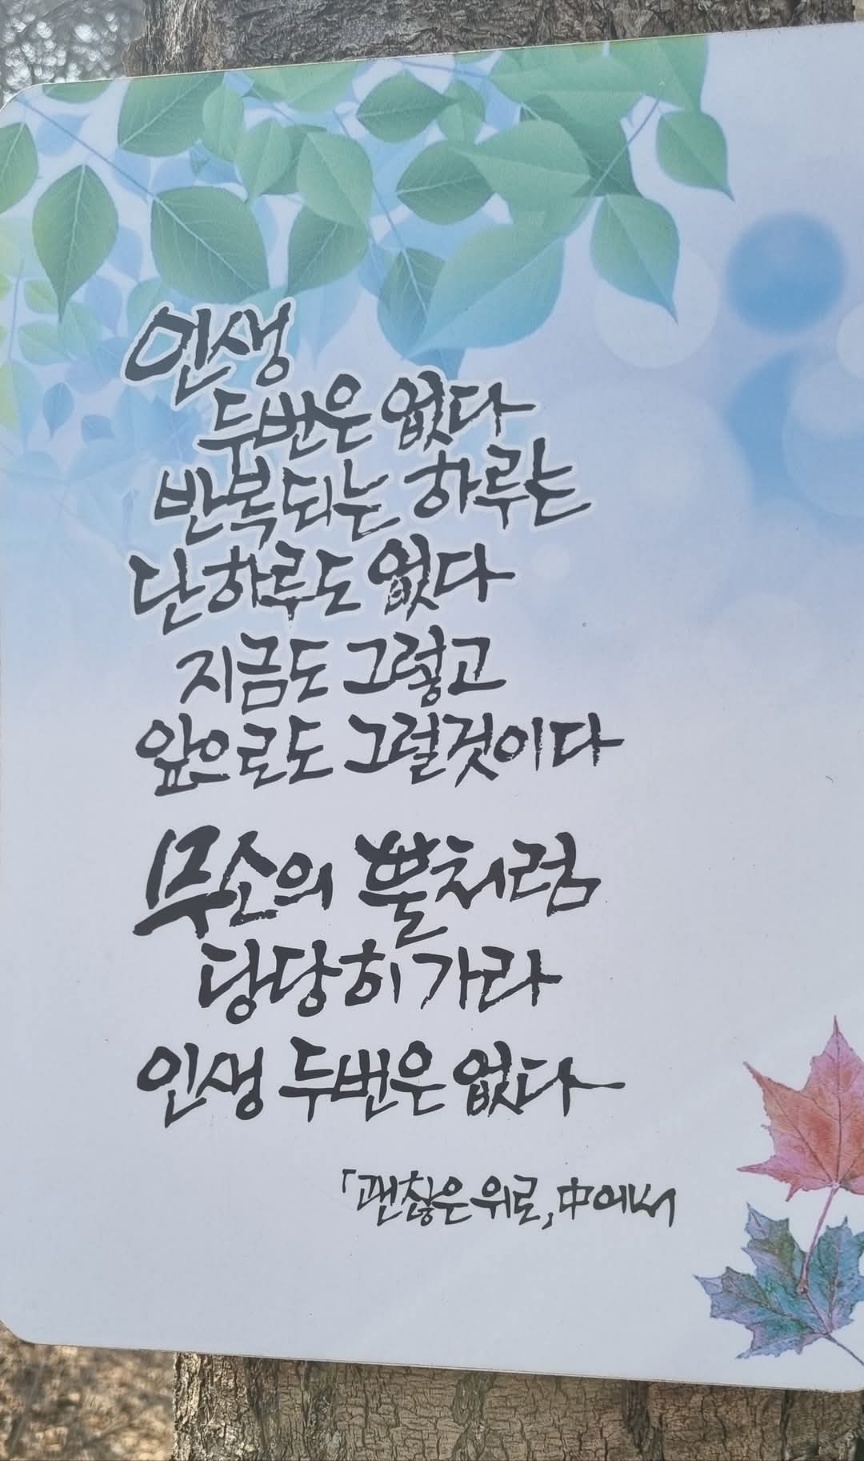 인생
두번은 없다
반복되는 하루는
단 하루도 없다
지금도 그렇고
앞으로도 그럴것이다
무소의 뿔처럼
당당히 가라
인생 두번은 없다
「괜찮은 위로」中에서